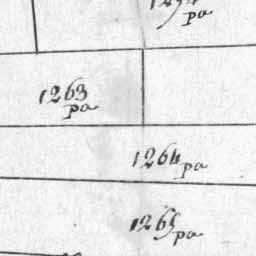 pa
1263
pa
1264 pa
1265 pa